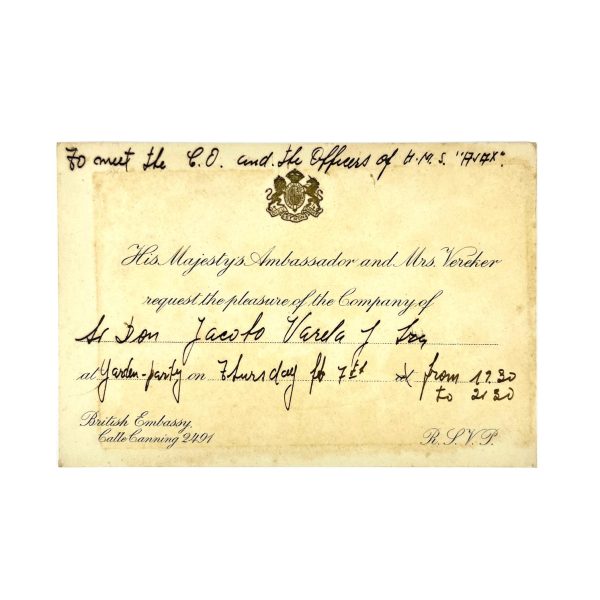 To meet the C.O. and the Officers of H.M.S. "AJAX".
His Majesty's Ambassador and Mrs. Vereker
request the pleasure of the Company of
Sr Don Jacobo Varela y Sra
at Garden-party on Thursday feb 7th at from 19.30
to 21.30
British Embassy,
Calle Canning 2491
R.S.V.P.